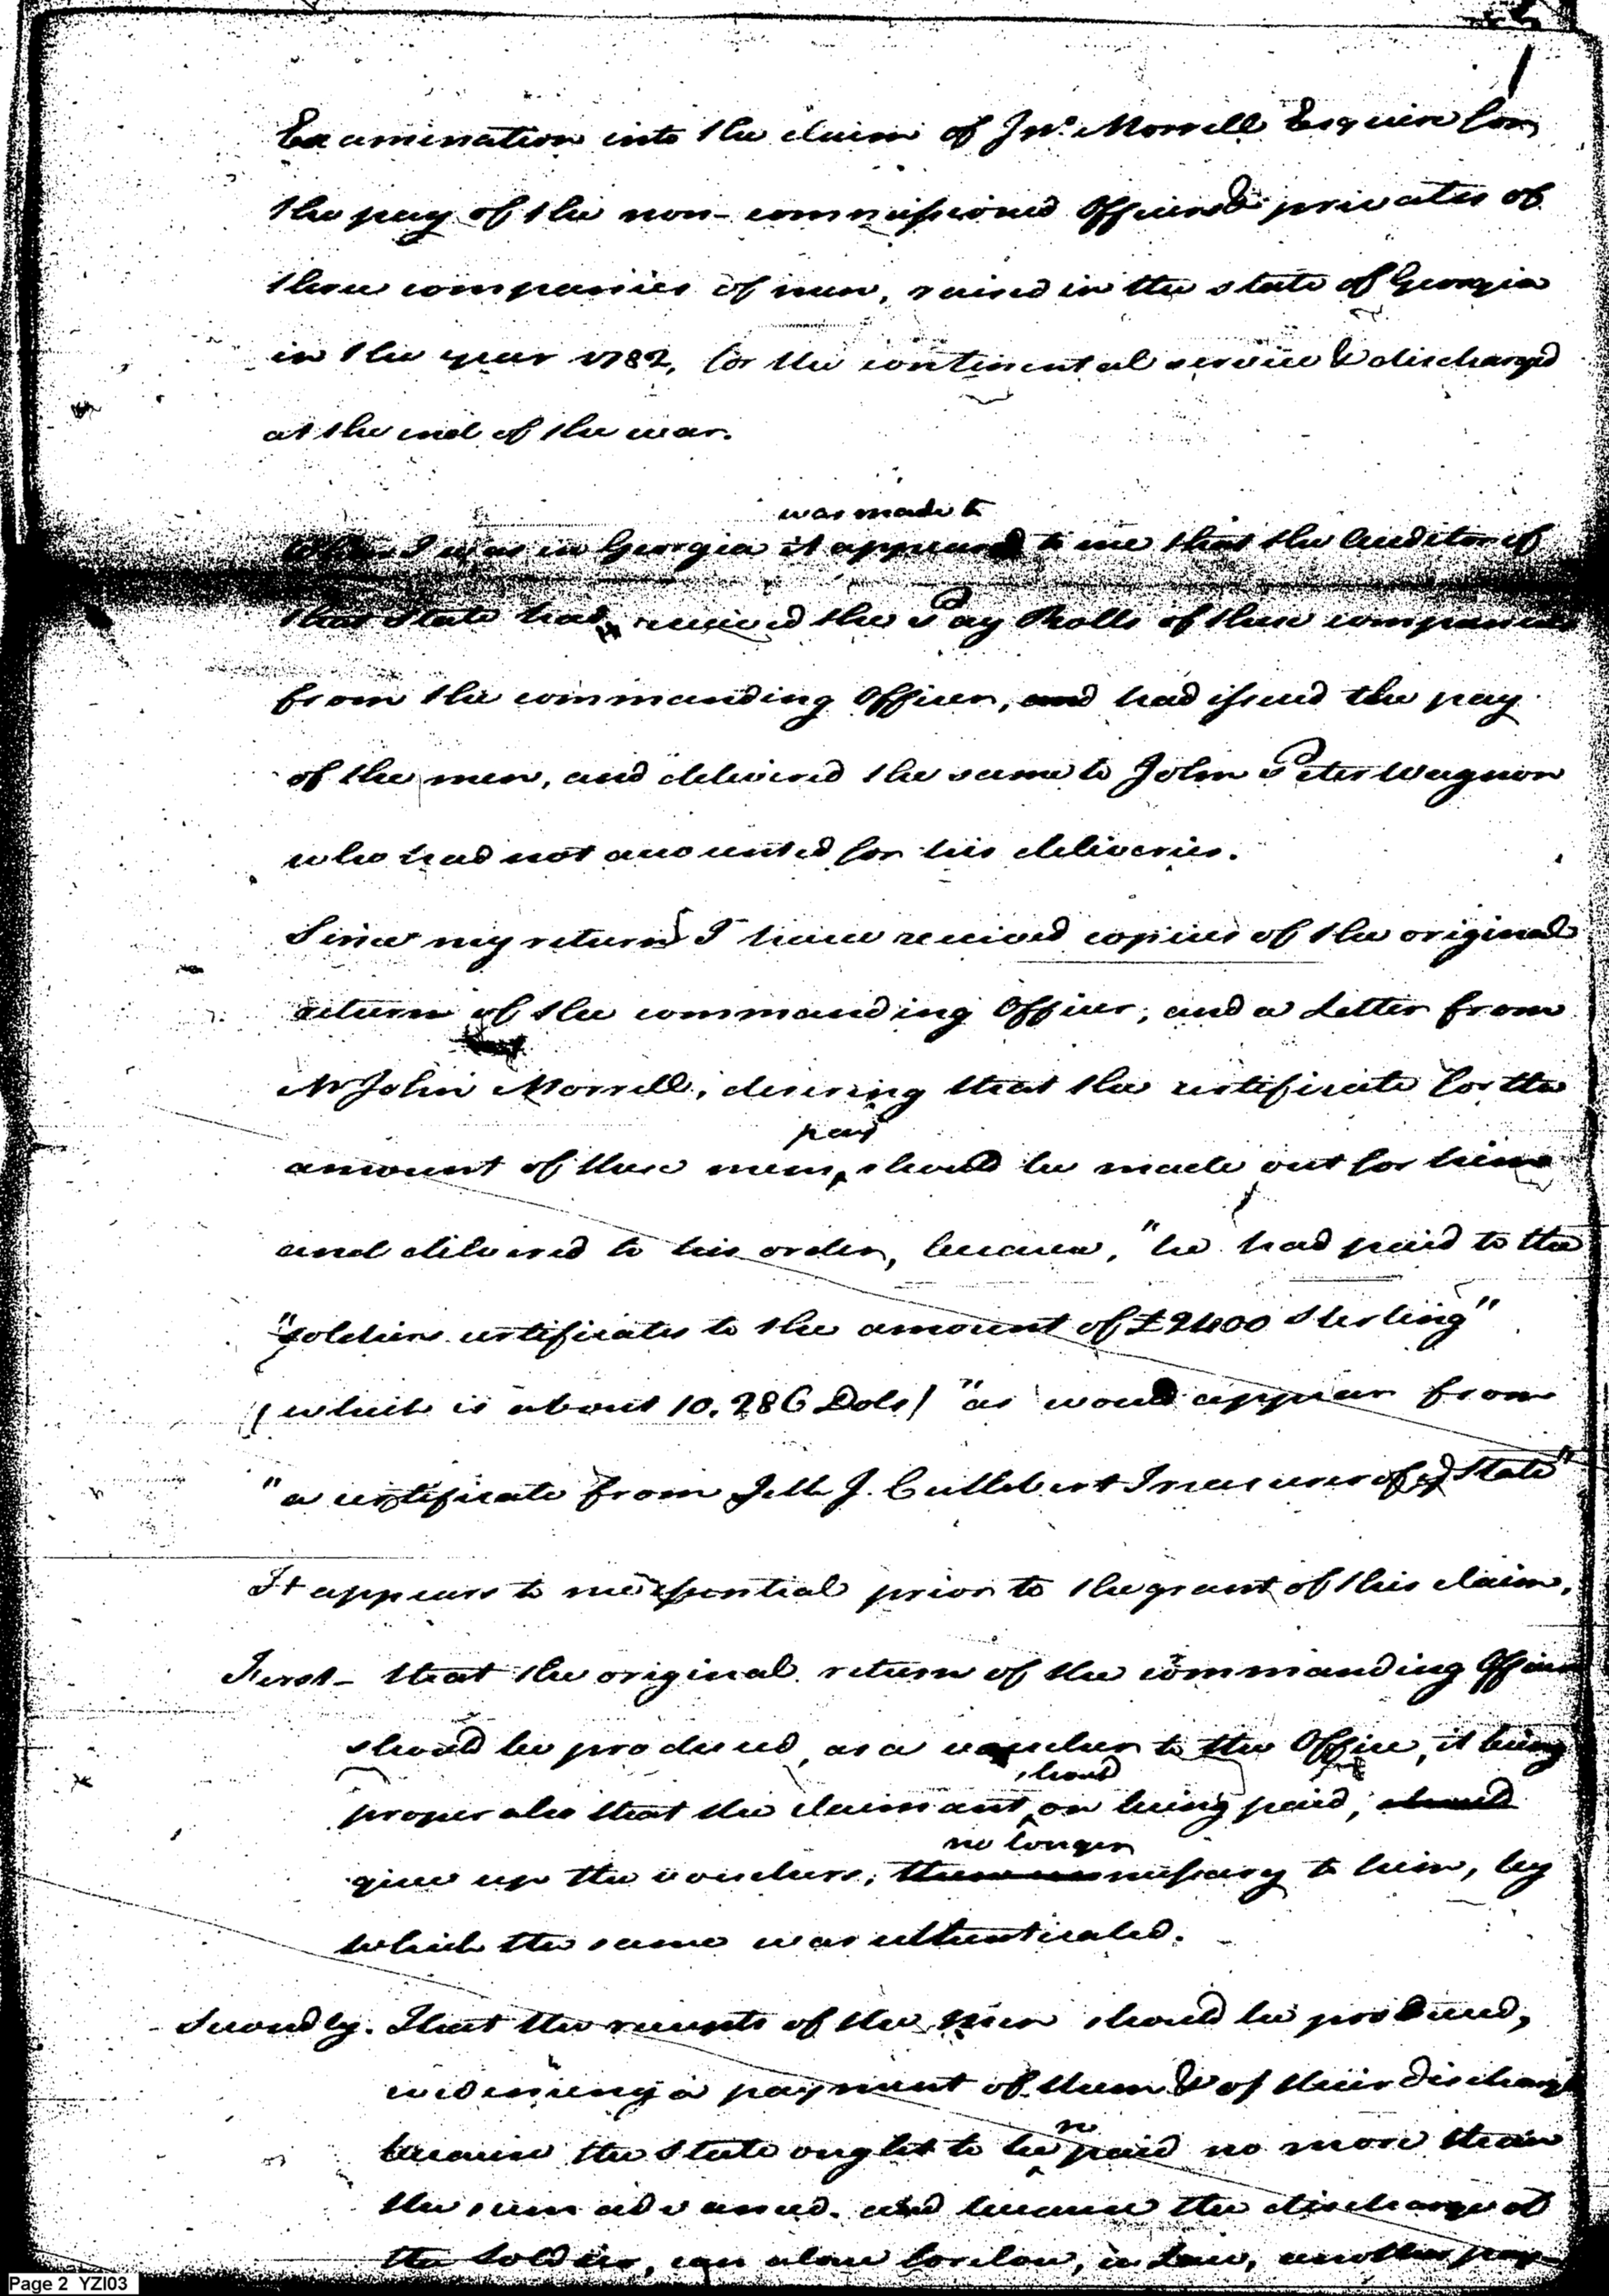 Examination into the claim of Jno. Morrell Esquire for
the pay of the non-commissioned Officers & privates of
three companies of men, raised in the state of Georgia
in the year 1782, for the continental service & discharged
at the end of the war.
was made to
When I was in Georgia it appeared to me that the Auditor of
that State had received the Pay Rolls of these companies
from the commanding Officer, and had issued the pay
of the men, and delivered the same to John Peter Wagnon
who had not accounted for his deliveries.
Since my return I have received copies of the original
return of the commanding Officer, and a Letter from
Mr John Morrell, desiring that the certificate for the
pay
amount of these mens, should be made out for him
and delivered to his order, because, "he had paid to the
"soldiers certificates to the amount of £2400 Sterling"
(which is about 10.286 Dols) "as would appear from
"a certificate from J. Cuthbert Treasurer of yd State"
It appears to me essential prior to the grant of this claim,
First - that the original return of the commanding Officer
should be produced, as a voucher to the Office, it being
should
proper also that the claimant, on being paid, should
no longer
give up the vouchers, necessary to him, by
which the same was authenticated.
Secondly. That the receipts of the men should be produced,
evidencing a payment of them & of their discharge
re
because the State ought to be paid no more than
the sum advanced. and because the discharge of
the soldier, can alone foreclose, in Law, another pay-
Page 2 YZI03